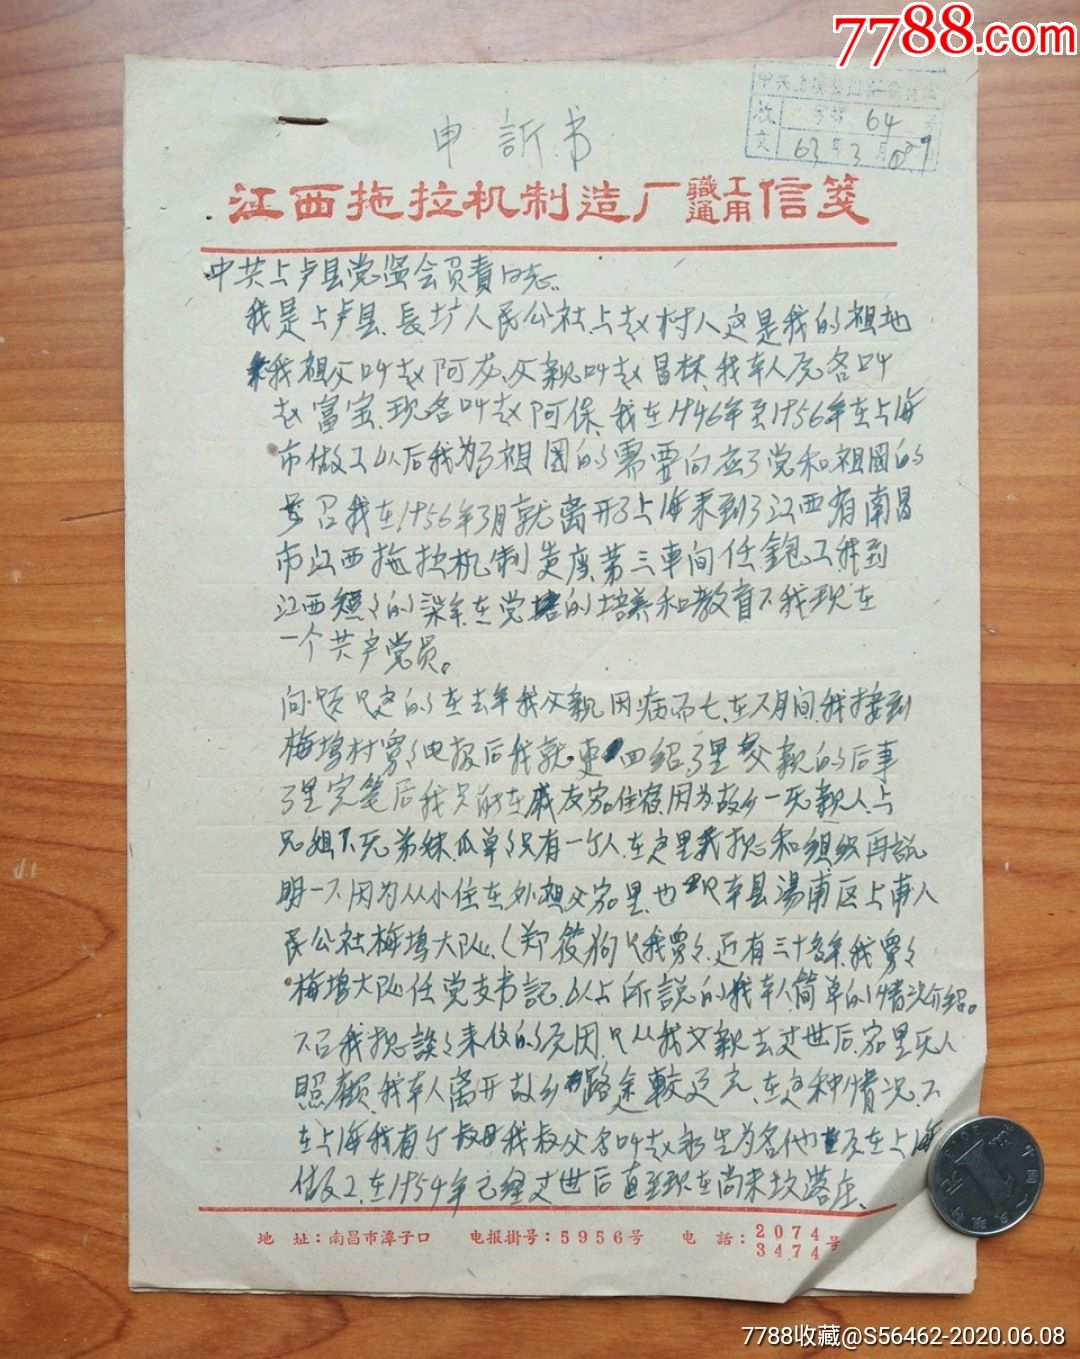 7788.com
收文
字第 64 号
63年3月
申訴书
江西拖拉机制造厂職工通用信笺
中共上卢县党监会负責同志:
我是上卢县、長圹人民公社、上赵村人这是我的祖地
我祖父叫赵阿苏、父親叫赵昌林、我本人原名叫
赵富宝、现名叫赵阿保、我在1946年至1956年在上海
市做工以后我为了祖国的需要向应了党和祖国的
号召我在1956年3月就离开了上海来到了江西省南昌
市江西拖拉机制造廠、第三車间任鉋工我到
江西短々的深年在党的培养和教育下我现在
一个共产党员。
问题是这的在去年我父親因病而亡、在7月间我接到
梅塢村舅々电报后我就 回紹、了里父親的后事
了里完笔后我只能在戚友家住宿因为故乡一无親人上
兄姐下无弟妹、瓜单々只有一个人、在这里我想和組织再説
明一下因为从小住在外祖父家里、也 本县湯甫区上甫人
民公社梅塢大队、(郑筱狗)我舅々、近有三十多年、我舅々
梅塢大队任党支书記、以上所説的我本人簡单的情况介紹。
下召我想談々来伩的原因、只从我父親去世后、家里无人
照顧、我本人离开故乡路途較远、在这种情况、下
在上海我有个叔母我叔父名叫赵永生为名他 原在上海
做工、在1954年已经世后直至现在尚未坟落庄、
地 址:南昌市潭子口 电报掛号:5956号 电 話:2074 3474号
7788收藏@S56462-2020.06.08